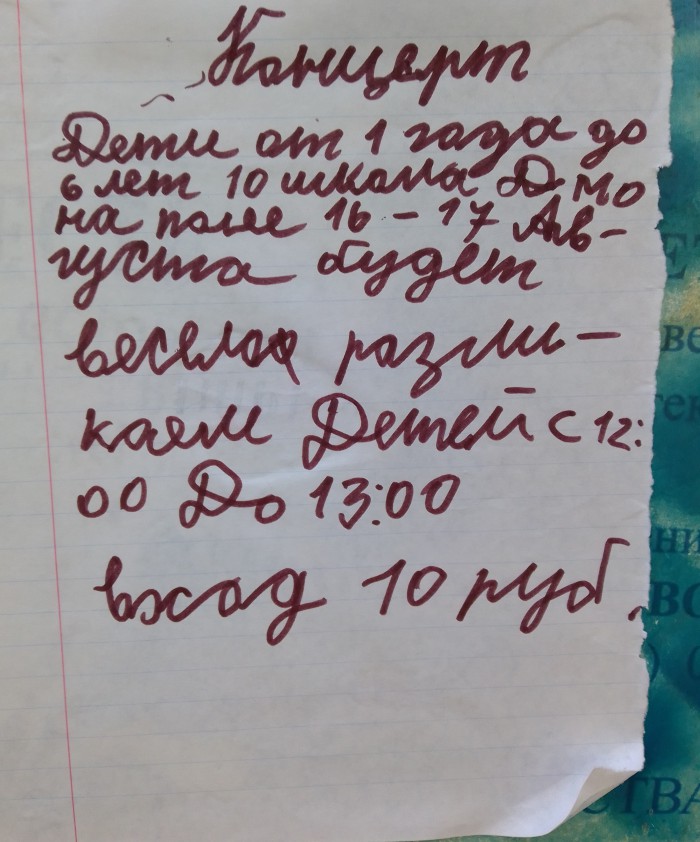 Концерт
Дети от 1 года до
6 лет 10 школа
на поле 16 - 17 Ав-
густа будет
весело розгли-
каем Детей с 12:
00 До 13:00
вход 10 руб.
ве
ни
во
СТВА